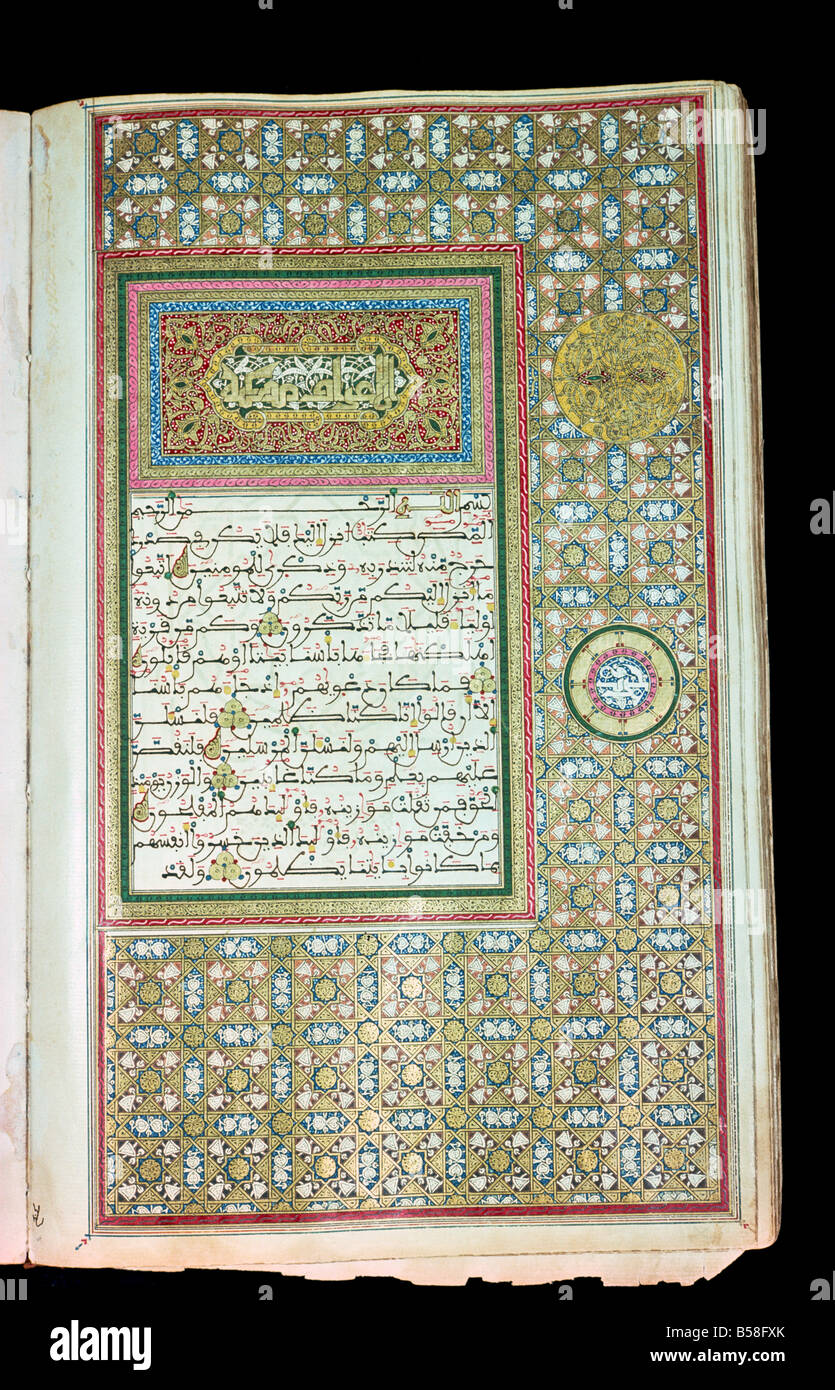 بسم الله الرحمن الرحيم
المص كتب انزل اليك فلا يكن في صدرك
حرج منه لتنذر به وذكرى للمومنين اتبعوا
ما انزل اليكم من ربكم ولا تتبعوا من دونه
أولياء قليلا ما تذكرون وكم من قرية
اهلكنها فجاءها باسنا بيتا او هم قايلون
فما كان دعويهم إذ جاءهم باسنا
الا ان قالوا انا كنا ظلمين فلنسئلن
الذين ارسل اليهم ولنسئلن المرسلين فلنقصن
عليهم بعلم وما كنا غايبين والوزن يوميذ
الحق فمن ثقلت موازينه فاوليك هم المفلحون
ومن خفت موازينه فاوليك الذين خسروا انفسهم
بما كانوا بايتنا يظلمون ولقد
a
alamy
Image ID: B58FXK
www.alamy.com